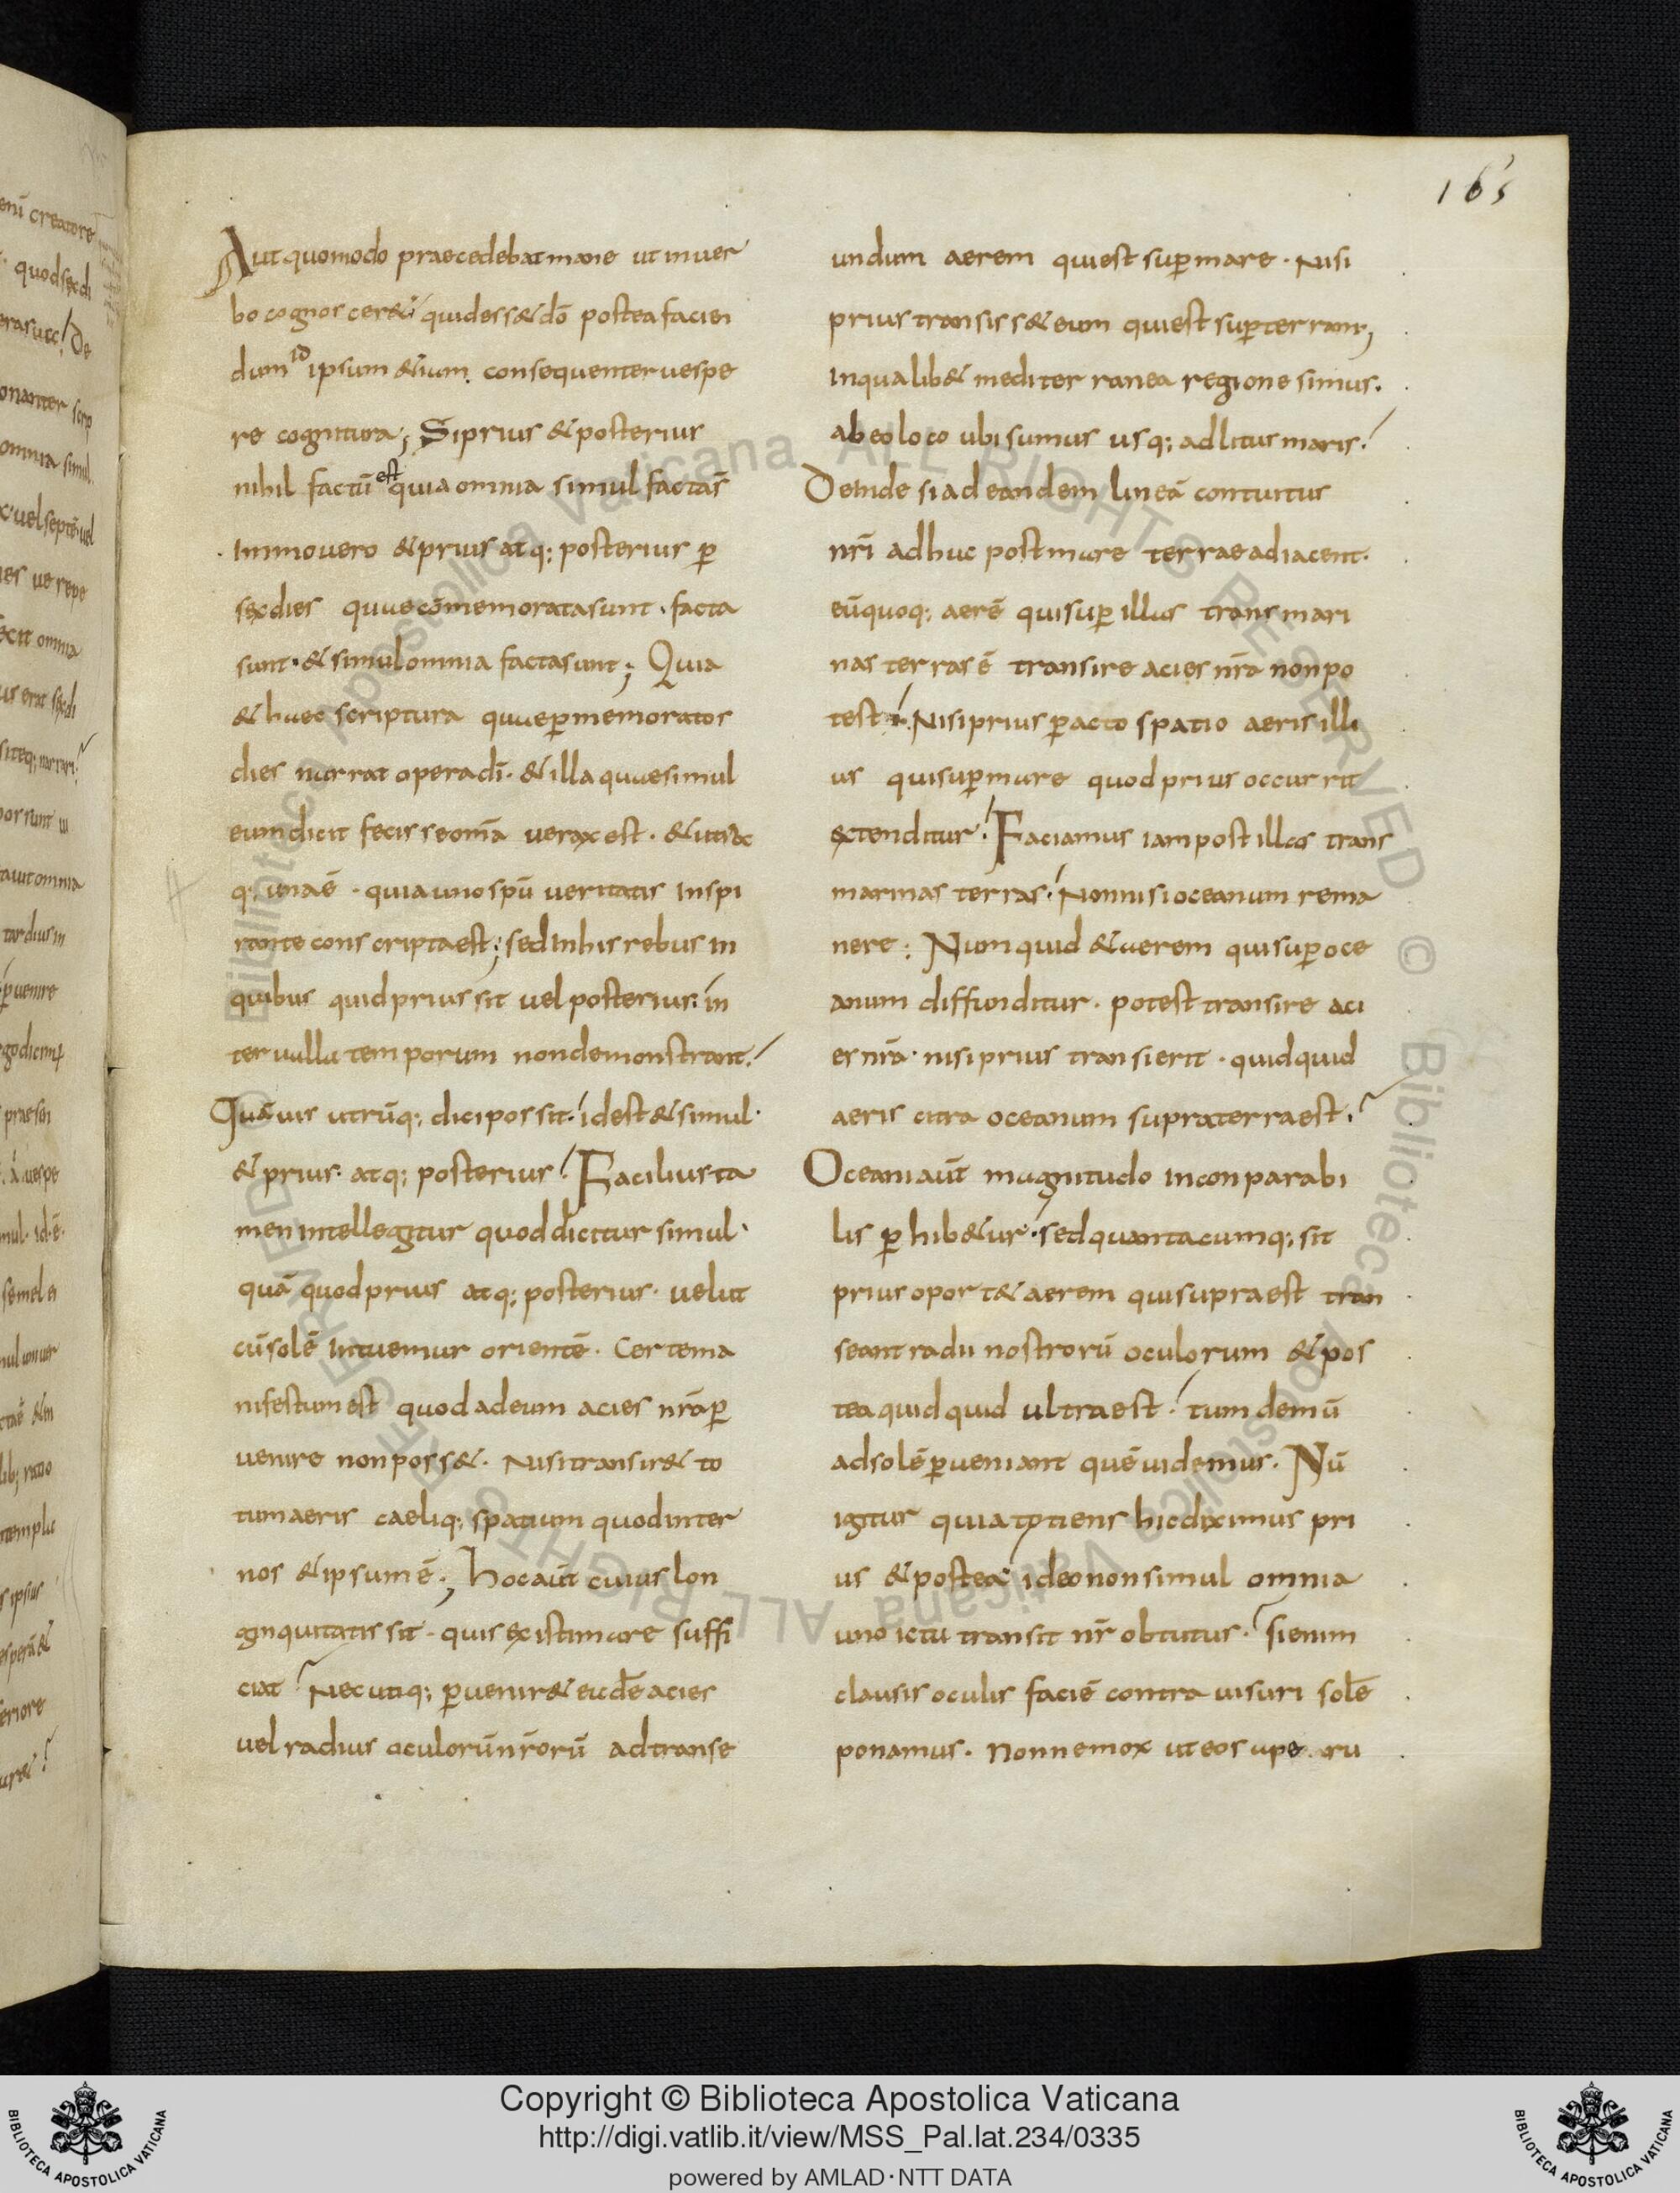 165
Aut quomodo praecedebat mane ut in uer
bo cognosceret quid esset a dō postea facien
dum id ipsum etiam consequenter uespe
re cognitura; Si prius & posterius
nihil factū est quia omnia simul facta s̄
Immo uero & prius atq; posterius p̄
sex dies quae cōmemorata sunt · facta
sunt · & simul omnia facta sunt; Quia
& haec scriptura quae p̄ memoratos
dies narrat opera dī · & illa quae simul
eum dicit fecisse omīa uerax est · & utra
q; una ē · quia uno spū ueritatis inspi
rante conscripta est; sed In his rebus in
quibus quid prius sit uel posterius in
terualla temporum non demonstrant
Quāuis utrūq; dici possit · idest & simul ·
& prius · atq; posterius Facilius ta
men intellegitur quod dicitur simul ·
quā quod prius atq; posterius · uelut
cū solē Intuemur orientē · Certe ma
nifestum est quod ad eum acies nr̄a p̄
uenire non posset · Nisi transiret to
tum aeris caeliq; spatium quod inter
nos & ipsum ē; hoc aūt cuius lon
ginquitatis sit · quis existimare suffi
ciat Nec utiq; p̄ueniret eadē acies
uel radius oculorū nr̄orū ad transe
undum aerem qui est sup̄ mare · Nisi
prius transisset eum qui est sup̄ terram,
In qualibet mediterranea regione simus.
ab eo loco ubi sumus usq; ad litus maris
Deinde si ad eandem lineā contuitus
nr̄i adhuc post mare terrae adiacent ·
eū quoq; aerē qui sup̄ illas transmari
nas terras ē transire acies nr̄a non po
test · Nisi prius p̄acto spatio aeris illi
us qui sup̄ mare quod prius occurrit
extenditur Faciamus iam post illas trans
marinas terras Non nisi oceanum rema
nere: Numquid & aerem qui sup̄ oce
anum diffunditur · potest transire aci
es nr̄a · nisi prius transierit · quidquid
aeris citra oceanum supra terra est
Oceani aūt magnitudo inconparabi
lis p̄hibetur · sed quantacumq; sit
prius oportet aerem qui supra est tran
seant radii nostrorū oculorum & pos
tea quidquid ultra est tum demū
ad solē p̄ueniant quē uidemus · Nū
igitur quia totiens hic diximus pri
us & postea ideo non simul omnia
uno ictu transit nr̄ obtutus · si enim
clausis oculis faciē contra uisuri solē
ponamus · Nonne mox ut eos ape ru
Copyright © Biblioteca Apostolica Vaticana
http://digi.vatlib.it/view/MSS_Pal.lat.234/0335
powered by AMLAD·NTT DATA
BIBLIOTECA APOSTOLICA VATICANA
BIBLIOTECA APOSTOLICA VATICANA